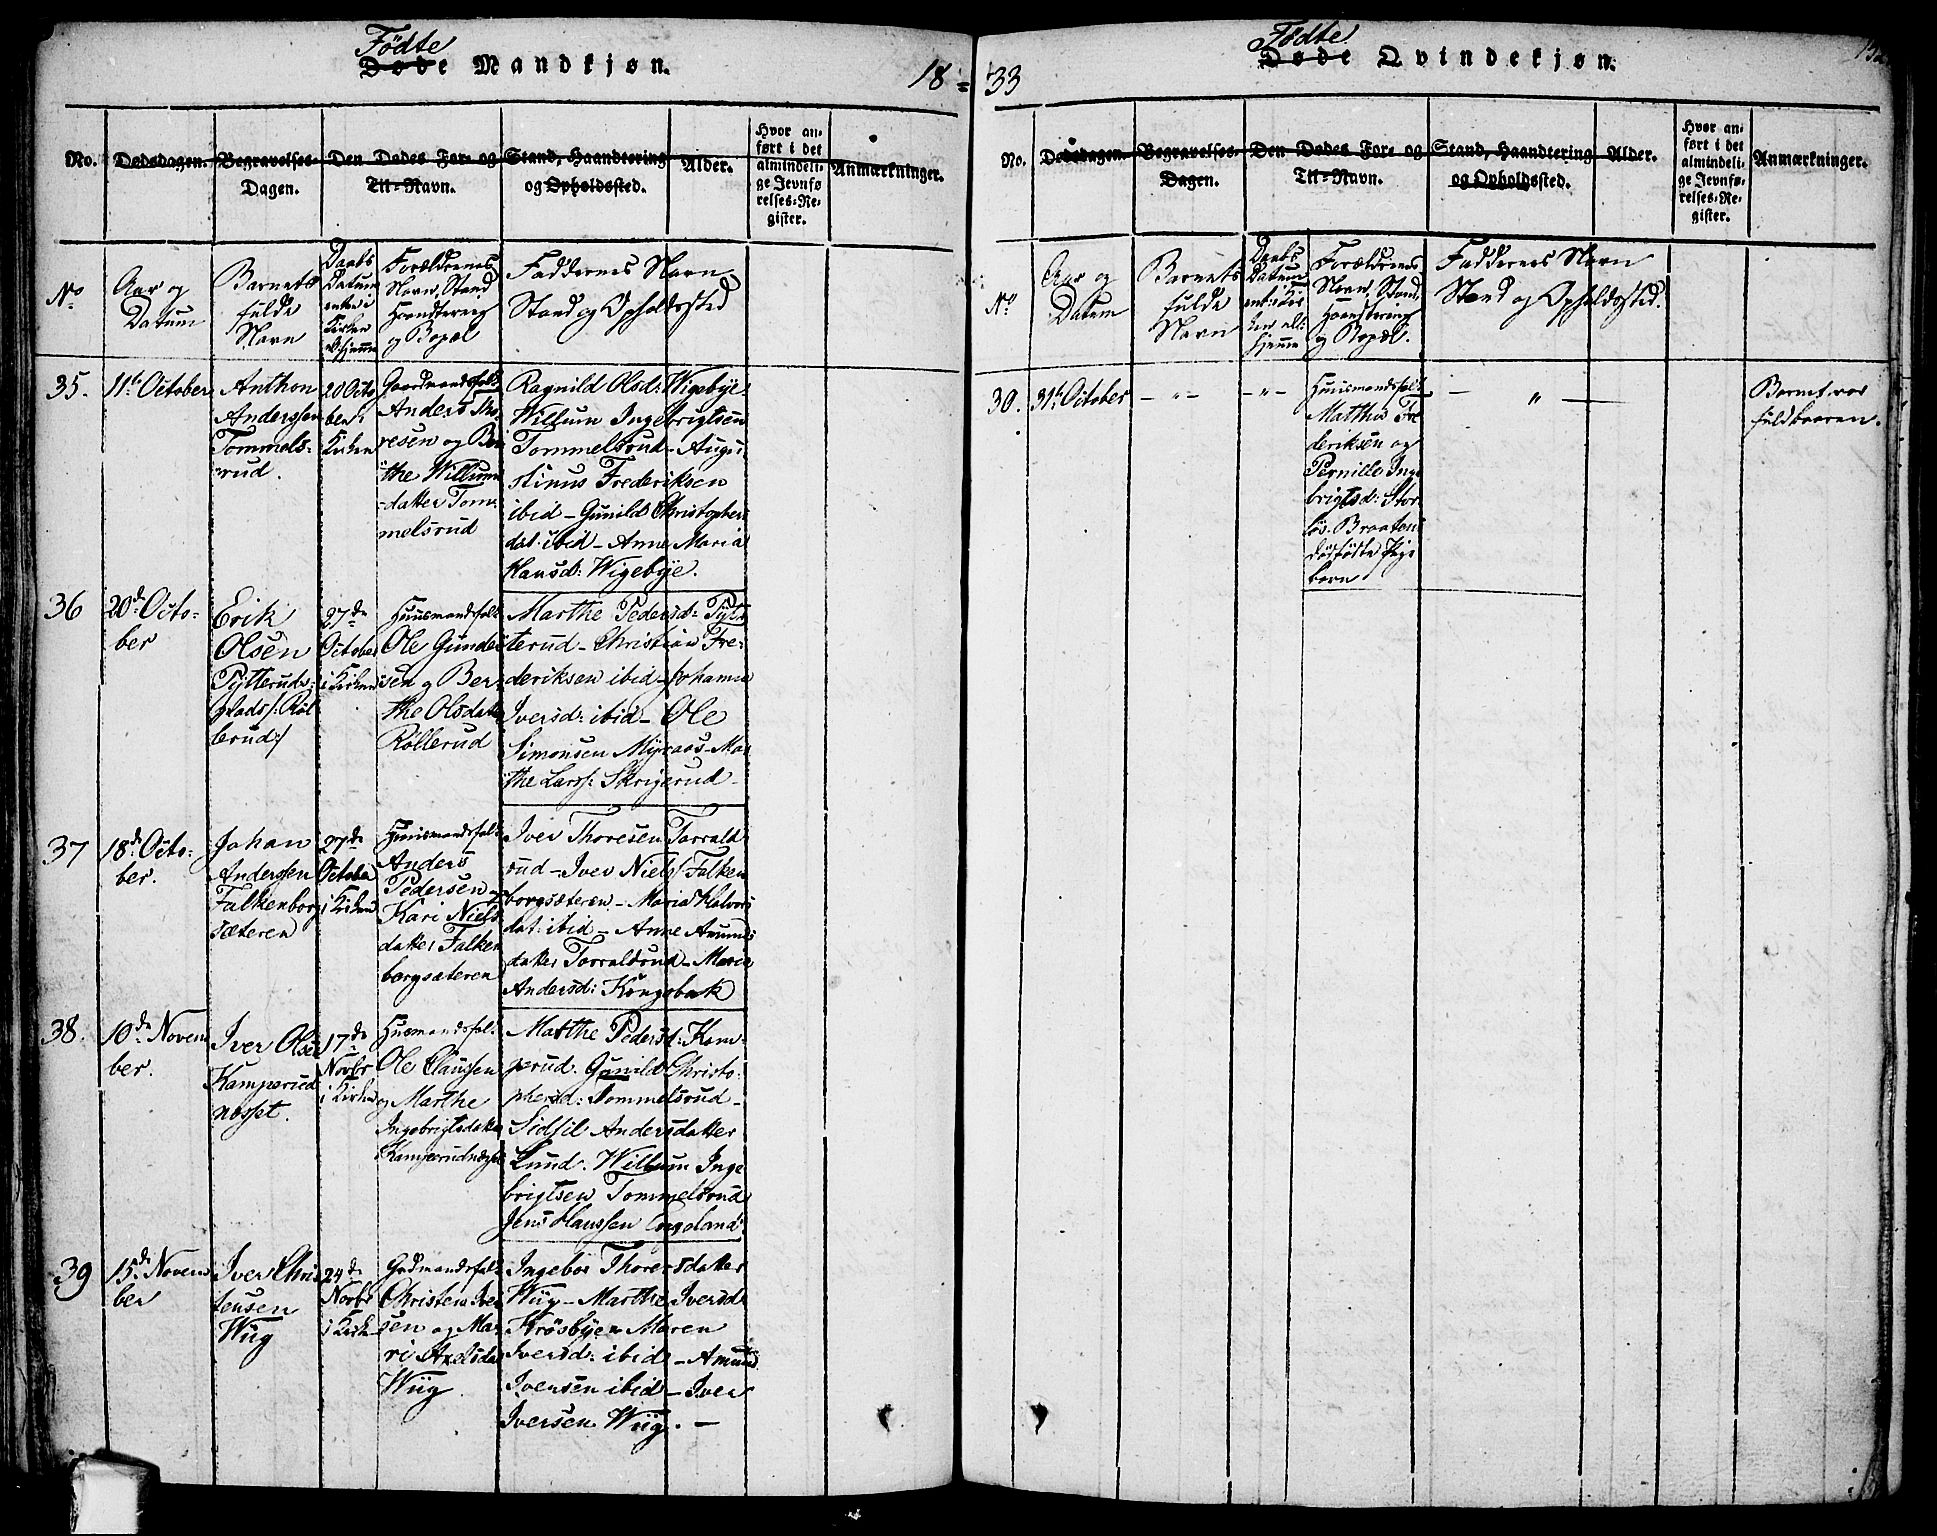 Fødte
Døde Mandkjøn.
18 = 33
No.
Dødsdagen.
Begravelses-
Dagen.
Den Dødes For- og
Til-Navn.
Stand, Haandtering
og Opholdssted.
Alder.
Hvor an-
ført i det
almindeli-
ge Jevnfø
relses-Re-
gister.
Anmærkninger.
No
Aar og
Datum
Barnets
fulde
Navn
Daabs
Datum
enten i
Kirken
Hjemme
Forældrenes
Navn, Stand
Haandtering
og Bopæl
Faddernes Navn
Stand og Opholdssted
35.
11te October
Anthon
Anderssen
Tommels-
rud.
20 Octo
ber i
Kirken
Gaardmandsfolk
Anders Tho
resen og Ber
the Willums
datter Tom-
melsrud
Ragnild Olsd: Wigebye-
Willum Ingebrigtsen
Tommelsrud - Augu-
stinus Frederiksen
ibid - Gunild Christophers
dat. ibid - Anne Maria
Hansd: Wigebye.
36
20de Octo-
ber
Erik
Olsen
Pytteruds-
plads /: Røl
lerud:/
27de
October
i Kirken
Huusmandsfolk
Ole Gunder
sen og Ber-
the Olsdatter
Røllerud
Marthe Pedersd: Pyt-
terud - Christian Fre-
deriksen ibid - Johanne
Iversd: ibid - Ole
Simonsen Myraas - Mar
the Larss: Skrigerud -
37
18de Octo-
ber.
Johan
Anderssen
Falkenborg
sæteren
27de
October
i Kirken
Huusmandsfolk
Anders
Pedersen
Kari Niels
datter Falken
borgsæteren
Iver Thoresen Torrald
rud - Iver Niels/ Falken
borgsæteren - Maria Halvors
dat: ibid - Anne Amunds
datter Torraldsrud - Maria
Andersd: Kongsbak
38.
10de Novem
ber.
Iver Olsen
Kamperud
næsset.
17de
Novbr
i Kirken
Husmandsfolk
Ole Claussen
og Marthe
Ingebrigtsdatter
Kamperudnæsset
Marthe Pedersd: Kam-
perud. Gunild Christo-
phersd: Tommelsrud -
Sidsil Andersdatter
Lund. Willum Inge
brigtsen Tommelsrud
Jens Hanssen
39
15de Novem
ber
Iver Chris
tensen
Wiig
24de
Novbr
i Kirke
Gdmandsfolk
Christen Iver
sen og Ma-
ri Axelsda
Wiig
Ingebor Thoresdatter
Wiig - Marthe Iversd
Krosbye - Maren
Iversd: ibid - Amund
Iversen ibid - Iver
Iversen Wiig. -
Fødte
Døde Qvindekjøn.
No.
Dødsdagen.
Begravelses-
Dagen.
Den Dødes For- og
Til-Navn.
Stand, Haandtering
og Opholdssted.
Alder.
Hvor an-
ført i det
almindeli-
ge Jevnfø-
relses-Re-
gister.
Anmærkninger.
No
Aar og
Datum
Barnets
fulde
Navn
Daabs
Datum
ent: i Kir
ken ell:
hjemme
Forældrenes
Navn, Stand
Haandtering
og Bopæl.
Faddernes Navn
Stand og Opholdssted.
30.
31te October
- " -
- " -
Huusmandsfolk
Matthis Fre
deriksen og
Pernille Inge
brigtsd: Stor
løs. Braaten
dødfødte Pige
barn
- " -
Barnet var
fuldbaaren.